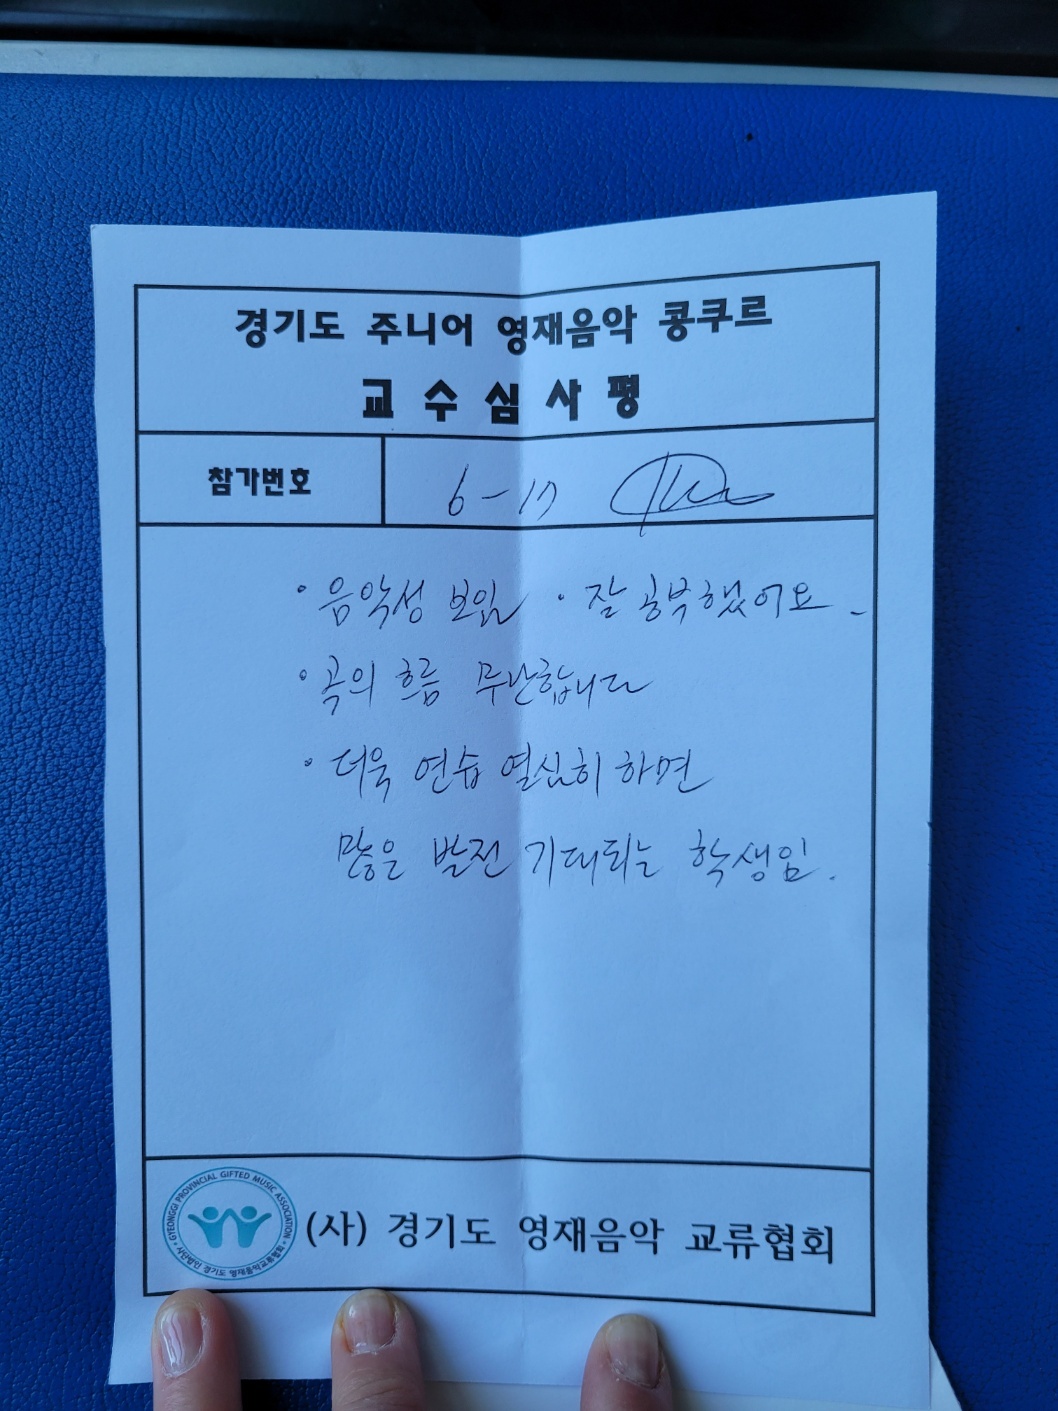 경기도 주니어 영재음악 콩쿠르
교수심사평
참가번호 6-17
· 음악성 보임 · 잘 공부했어요.
· 곡의 흐름 무난합니다
· 더욱 연습 열심히 하면
많은 발전 기대되는 학생임.
GYEONGGI PROVINCIAL GIFTED MUSIC ASSOCIATION
사단법인 경기도 영재음악교류협회
(사) 경기도 영재음악 교류협회